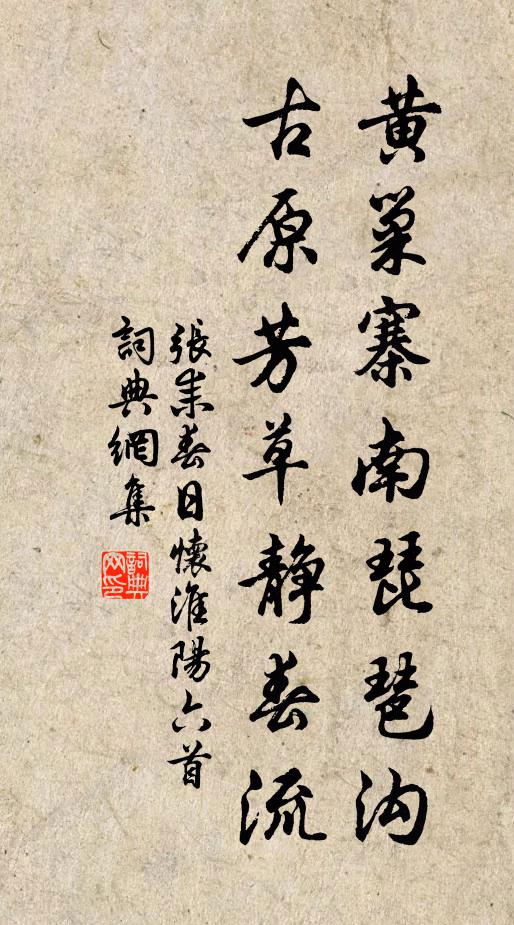 黄巢寨南琵琶沟
古原芳草静春流
張耒春日懷淮陽六首
詞典網集
詞典网印